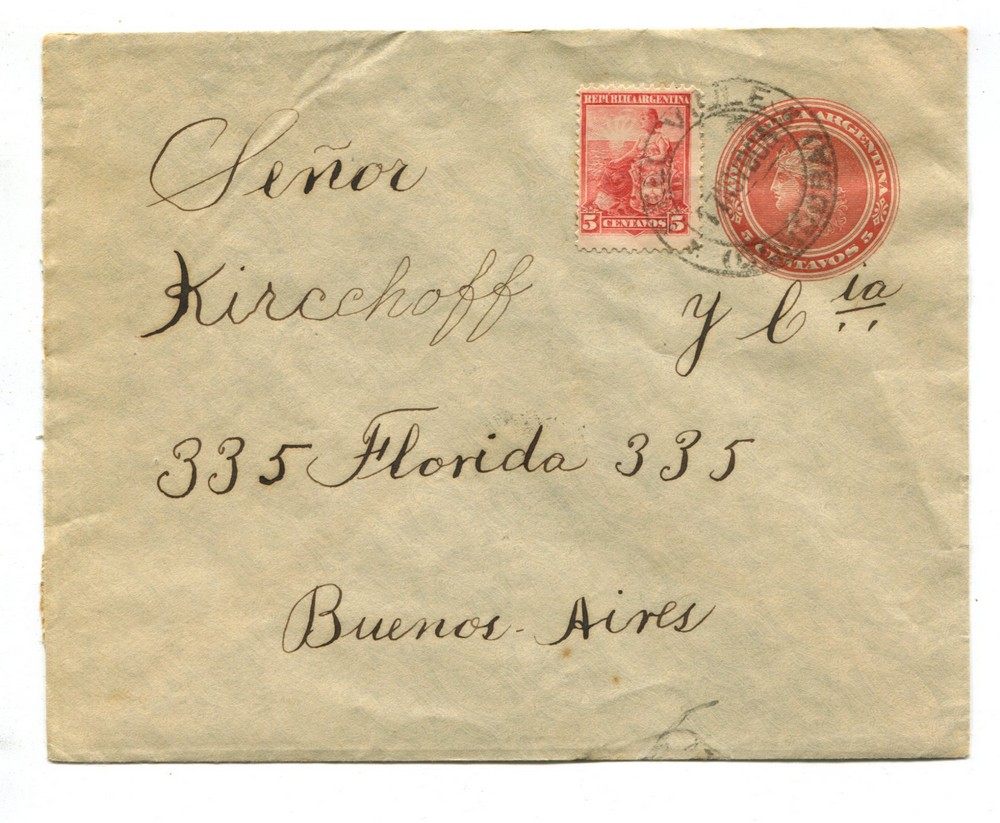 REPÚBLICA ARGENTINA
5 CENTAVOS 5
ARGENTINA
5 CENTAVOS 5
Señor
Kircchoff y Cia
335 Florida 335
Buenos-Aires